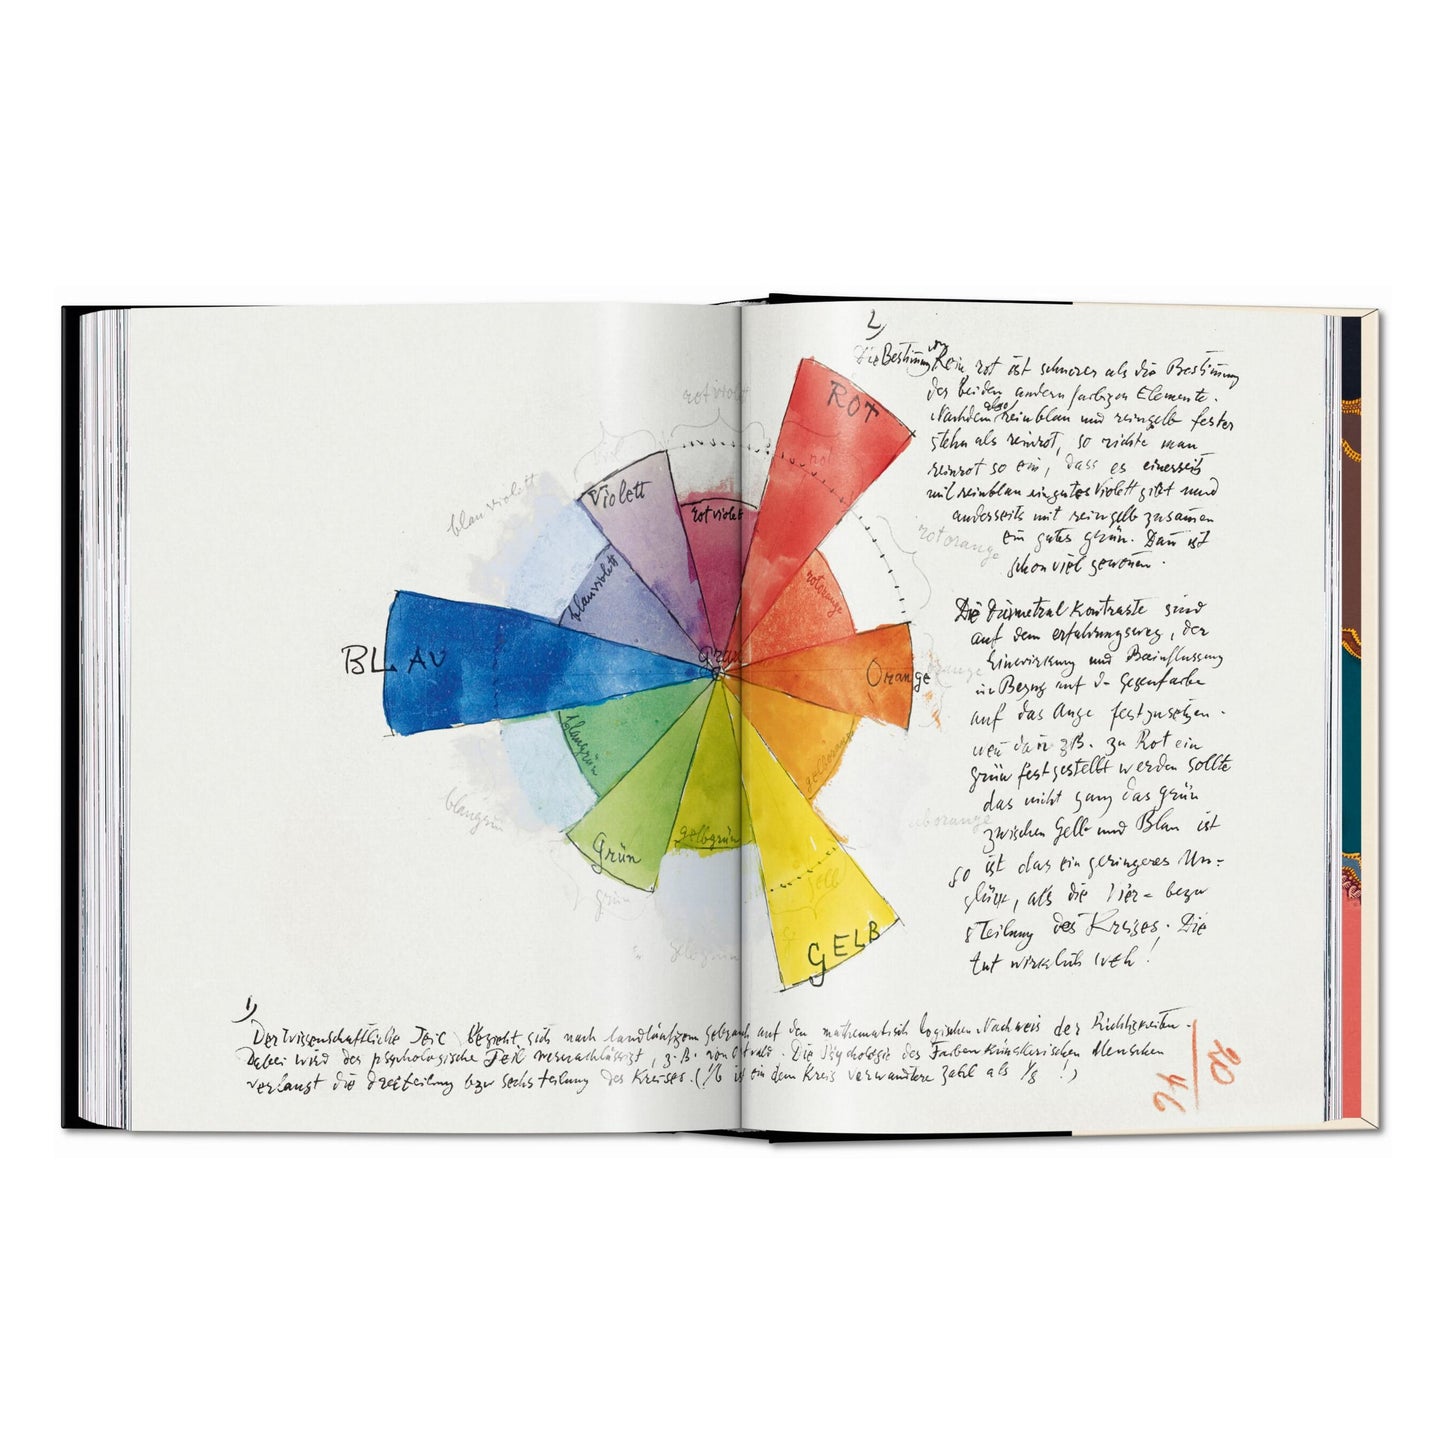 rotviolett
rot
blauviolett
Violett
rotviolett
ROT
rotorange
blauviolett
rotorange
BLAU
Grau
Orange
orange
blaugrün
gelborange
blaugrün
gelborange
Grün
gelbgrün
gelb
grün
gelbgrün
GELB
2)
Die Bestimmung von Rein rot ist schwerer als die Bestimmung
der beiden andern farbigen Elemente.
Nachdem also reinblau und reingelb fester
stehn als reinrot, so richte man
reinrot so ein, dass es einerseits
mit reinblau ein gutes Violett gibt und
anderseits mit reingelb zusammen
ein gutes grün. Dann ist
schon viel gewonnen.
Die diametral Kontraste sind
auf dem erfahrungsweg, der
Einwirkung und Beeinflussung
in Bezug auf die Gegenfarbe
auf das Auge festzusetzen.
wenn dann zB. zu Rot ein
grün festgestellt werden sollte
das nicht ganz das grün
zwischen Gelb und Blau ist
so ist das ein geringeres Un=
glück, als die Vier= bezw
8 Teilung des Kreises. Die
tut wirklich weh!
1)
Der Wissenschaftliche Teil bezieht sich nach landläufigem gebrauch auf den mathematisch logischen Nachweis der Richtigkeiten.
Dabei wird der psychologische Teil vernachlässigt, z.B. von Ostwald. Die Psychologie des Farben Künstlerischen Menschen
verlangt die dreiteilung bzw sechsteilung des Kreises. (1/6 ist ein dem Kreis verwandtere Zahl als 1/8 !)